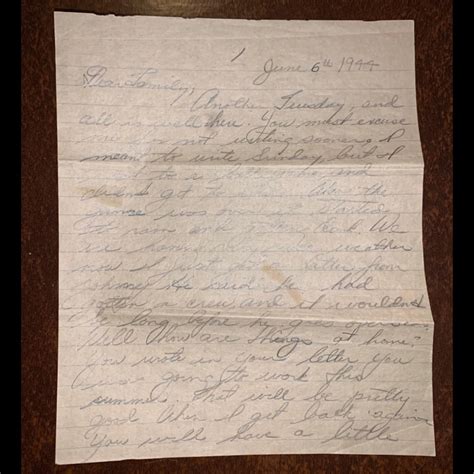 1
June 6th 1944
Dear Family,
Another Tuesday, and
all is well here. You must excuse
me for not writing sooner. I
meant to write Sunday, but I
went to a and
didn't get the
was over it started
to rain and We
weather
now. I just got a letter from
Johnny. He said he had
gotten a crew, and it wouldn't
be long before he goes overseas.
Well how are things at home?
You wrote in your letter you
were going to work this
summer. That will be pretty
good. When I get back again
you will have a little